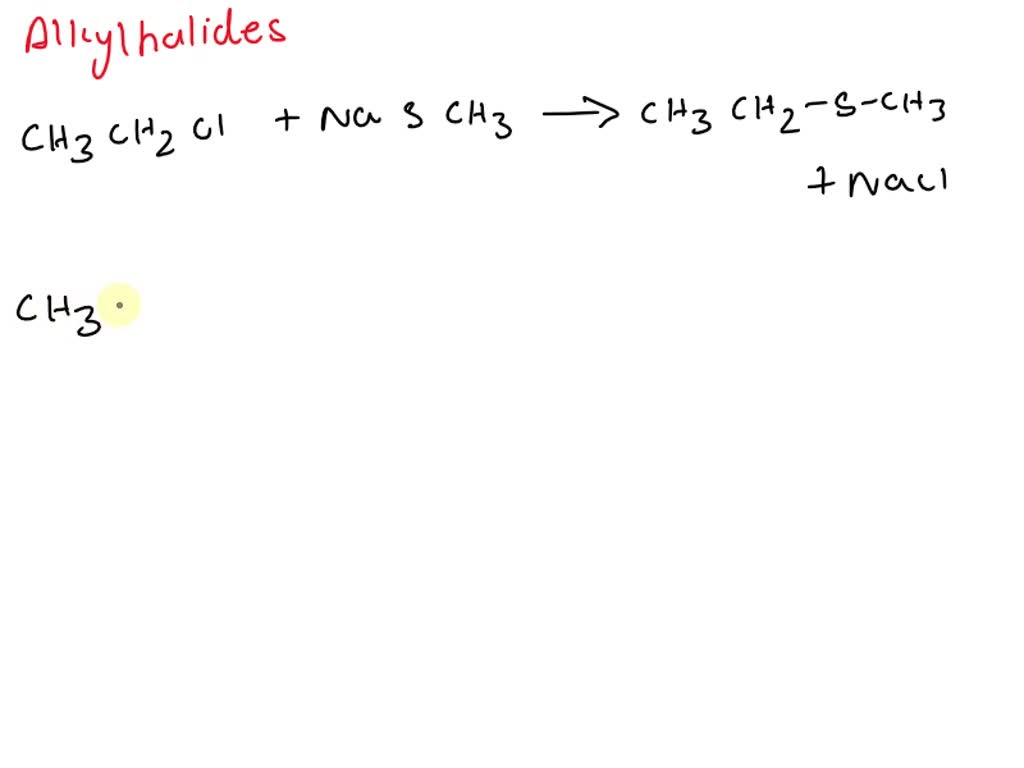 Alkylhalides
CH3 CH2 Cl + Na S CH3 → CH3 CH2-S-CH3
+ NaCl
CH3